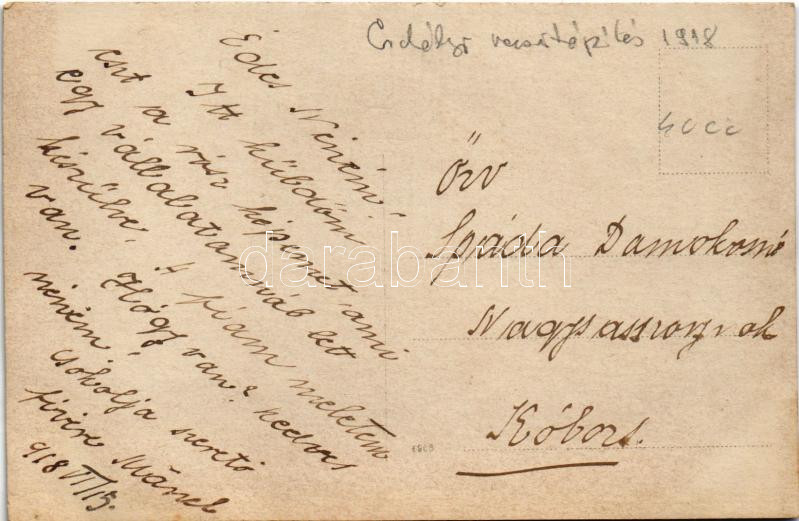 Erdélyi vasútépítés 1918
40cc
Édes Néném!
Itt küldöm
ezt a rósz képemet ami
egy vállalatomnál let
készülve. A fiam meletem
van. Hogy van? kedves
néném csokolja szerető
fivére
918 VI/15.
Özv
Spáda Damokosné
Nagysasszonynak
Kóbor.
1918
darabanth